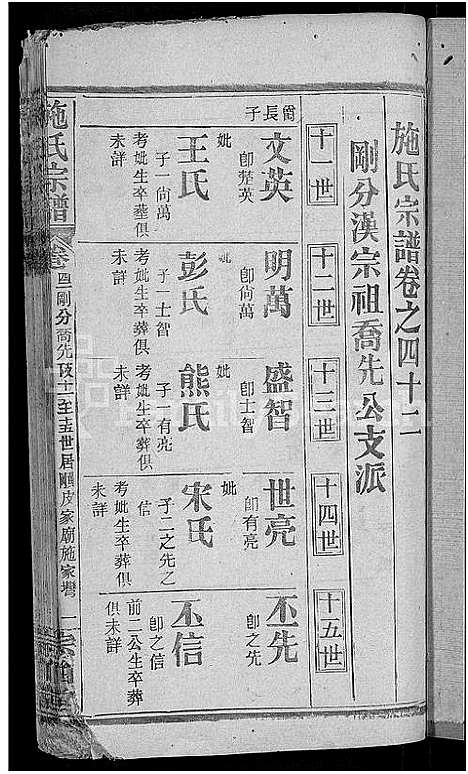 施氏宗譜卷之四十二
剛分漢宗祖喬先公支派
十一世
十二世
十三世
十四世
十五世
尙長子
文英
卽棼英
妣
王氏
子一尙萬
考妣生卒葬俱
未詳
明萬
卽尙萬
妣
彭氏
子一士智
考妣生卒葬俱
未詳
盛智
卽士智
妣
熊氏
子一有亮
考妣生卒葬俱
未詳
世亮
卽有亮
妣
宋氏
子二之先之
信
考妣生卒葬俱
未詳
丕先
卽之先
丕信
卽之信
前二公生卒葬
俱未詳
施氏宗譜
卷
剛分喬先
至十五世居
皮家廟施家灣
一